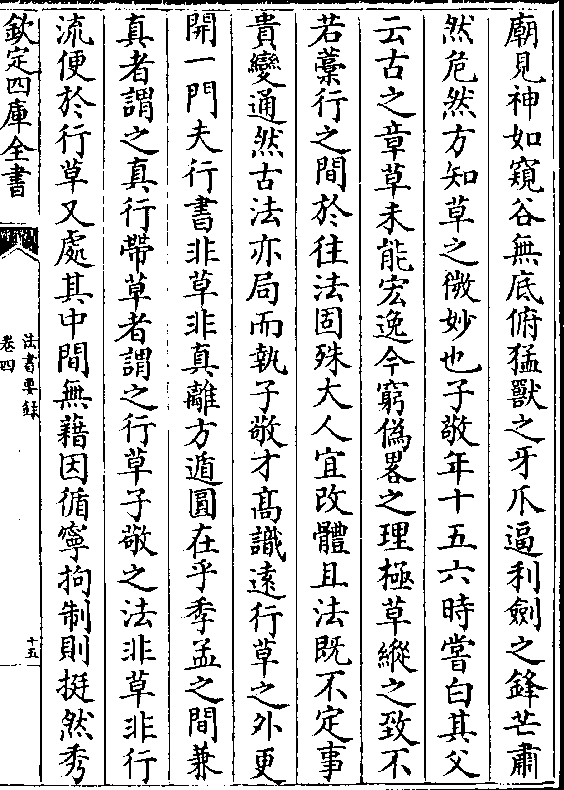 廟見神如窺谷無底俯猛獸之牙爪逼利劒之鋒芒肅
然危然方知草之微妙也子敬年十五六時嘗白其父
云古之章草未能宏逸今窮僞畧之理極草縱之致不
若藁行之間於往法固殊大人宜改體且法既不定事
貴變通然古法亦局而執子敬才高識遠行草之外更
開一門夫行書非草非真離方遁圓在乎季孟之間兼
真者謂之真行帶草者謂之行草子敬之法非草非行
流便於行草又處其中間無藉因循寧拘制則挺然秀
欽定四庫全書
法書要錄
卷四
十五